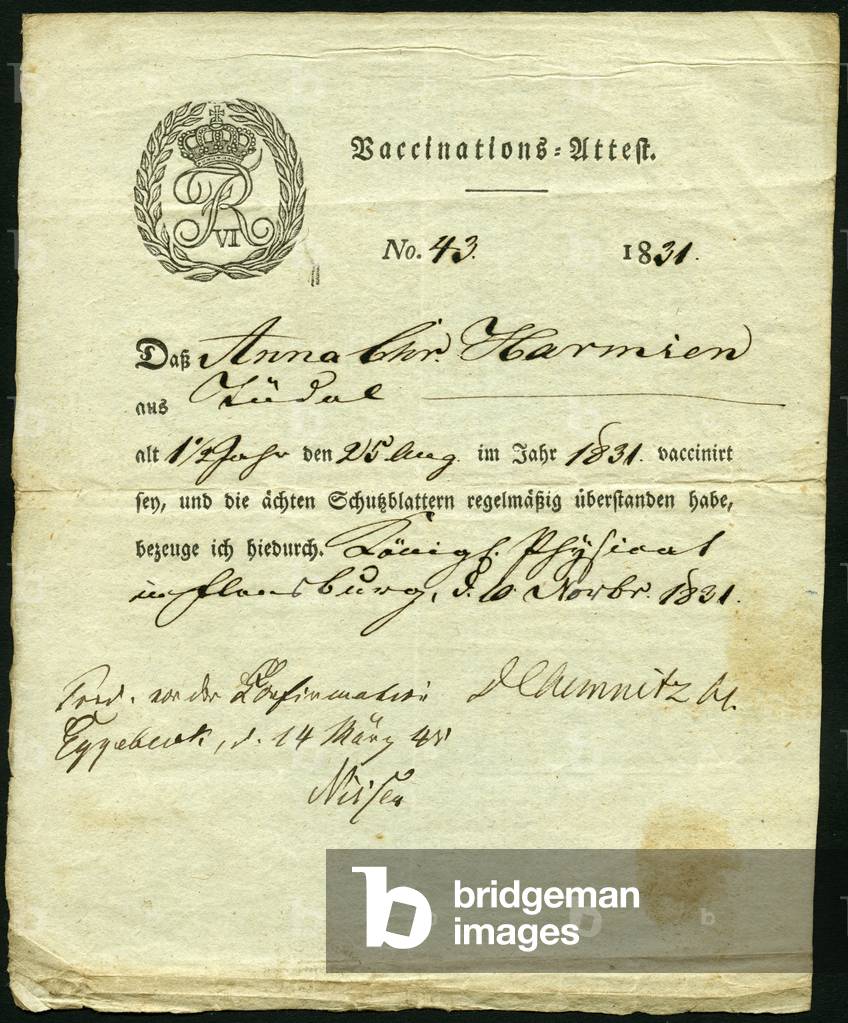 FR VI
Vaccinations-Attest.
No. 43. 1831.
Daß Anna Chr. Harmsen
aus
alt 1 1/2 Jahr den 25 Aug. im Jahr 1831. vaccinirt
sey, und die ächten Schutzblattern regelmäßig überstanden habe,
bezeuge ich hiedurch. Königl. Physicat
in Flensburg, d. Novbr. 1831.
vor der Confirmation
DChemnitz
Eggebeck, d. 14 März 45
Nissen
b bridgeman
images